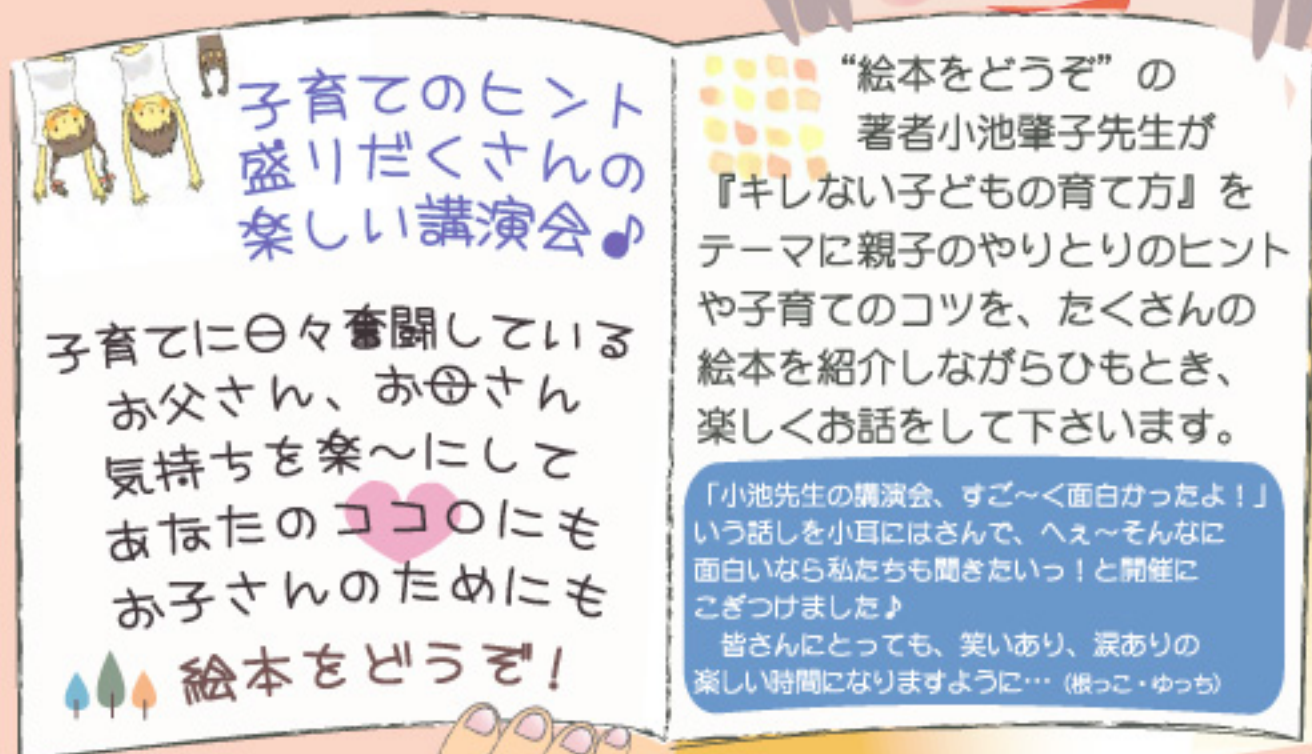 子育てのヒント
盛りだくさんの
楽しい講演会♪
子育てに日々奮闘している
お父さん、お母さん
気持ちを楽～にして
あなたのココロにも
お子さんのためにも
絵本をどうぞ!
“絵本をどうぞ”の
著者小池肇子先生が
『キレない子どもの育て方』を
テーマに親子のやりとりのヒント
や子育てのコツを、たくさんの
絵本を紹介しながらひもとき、
楽しくお話をして下さいます。
「小池先生の講演会、すご～く面白かったよ！」
いう話しを小耳にはさんで、へぇ～そんなに
面白いなら私たちも聞きたいっ！と開催に
こぎつけました♪
皆さんにとっても、笑いあり、涙ありの
楽しい時間になりますように…（根っこ・ゆっち）